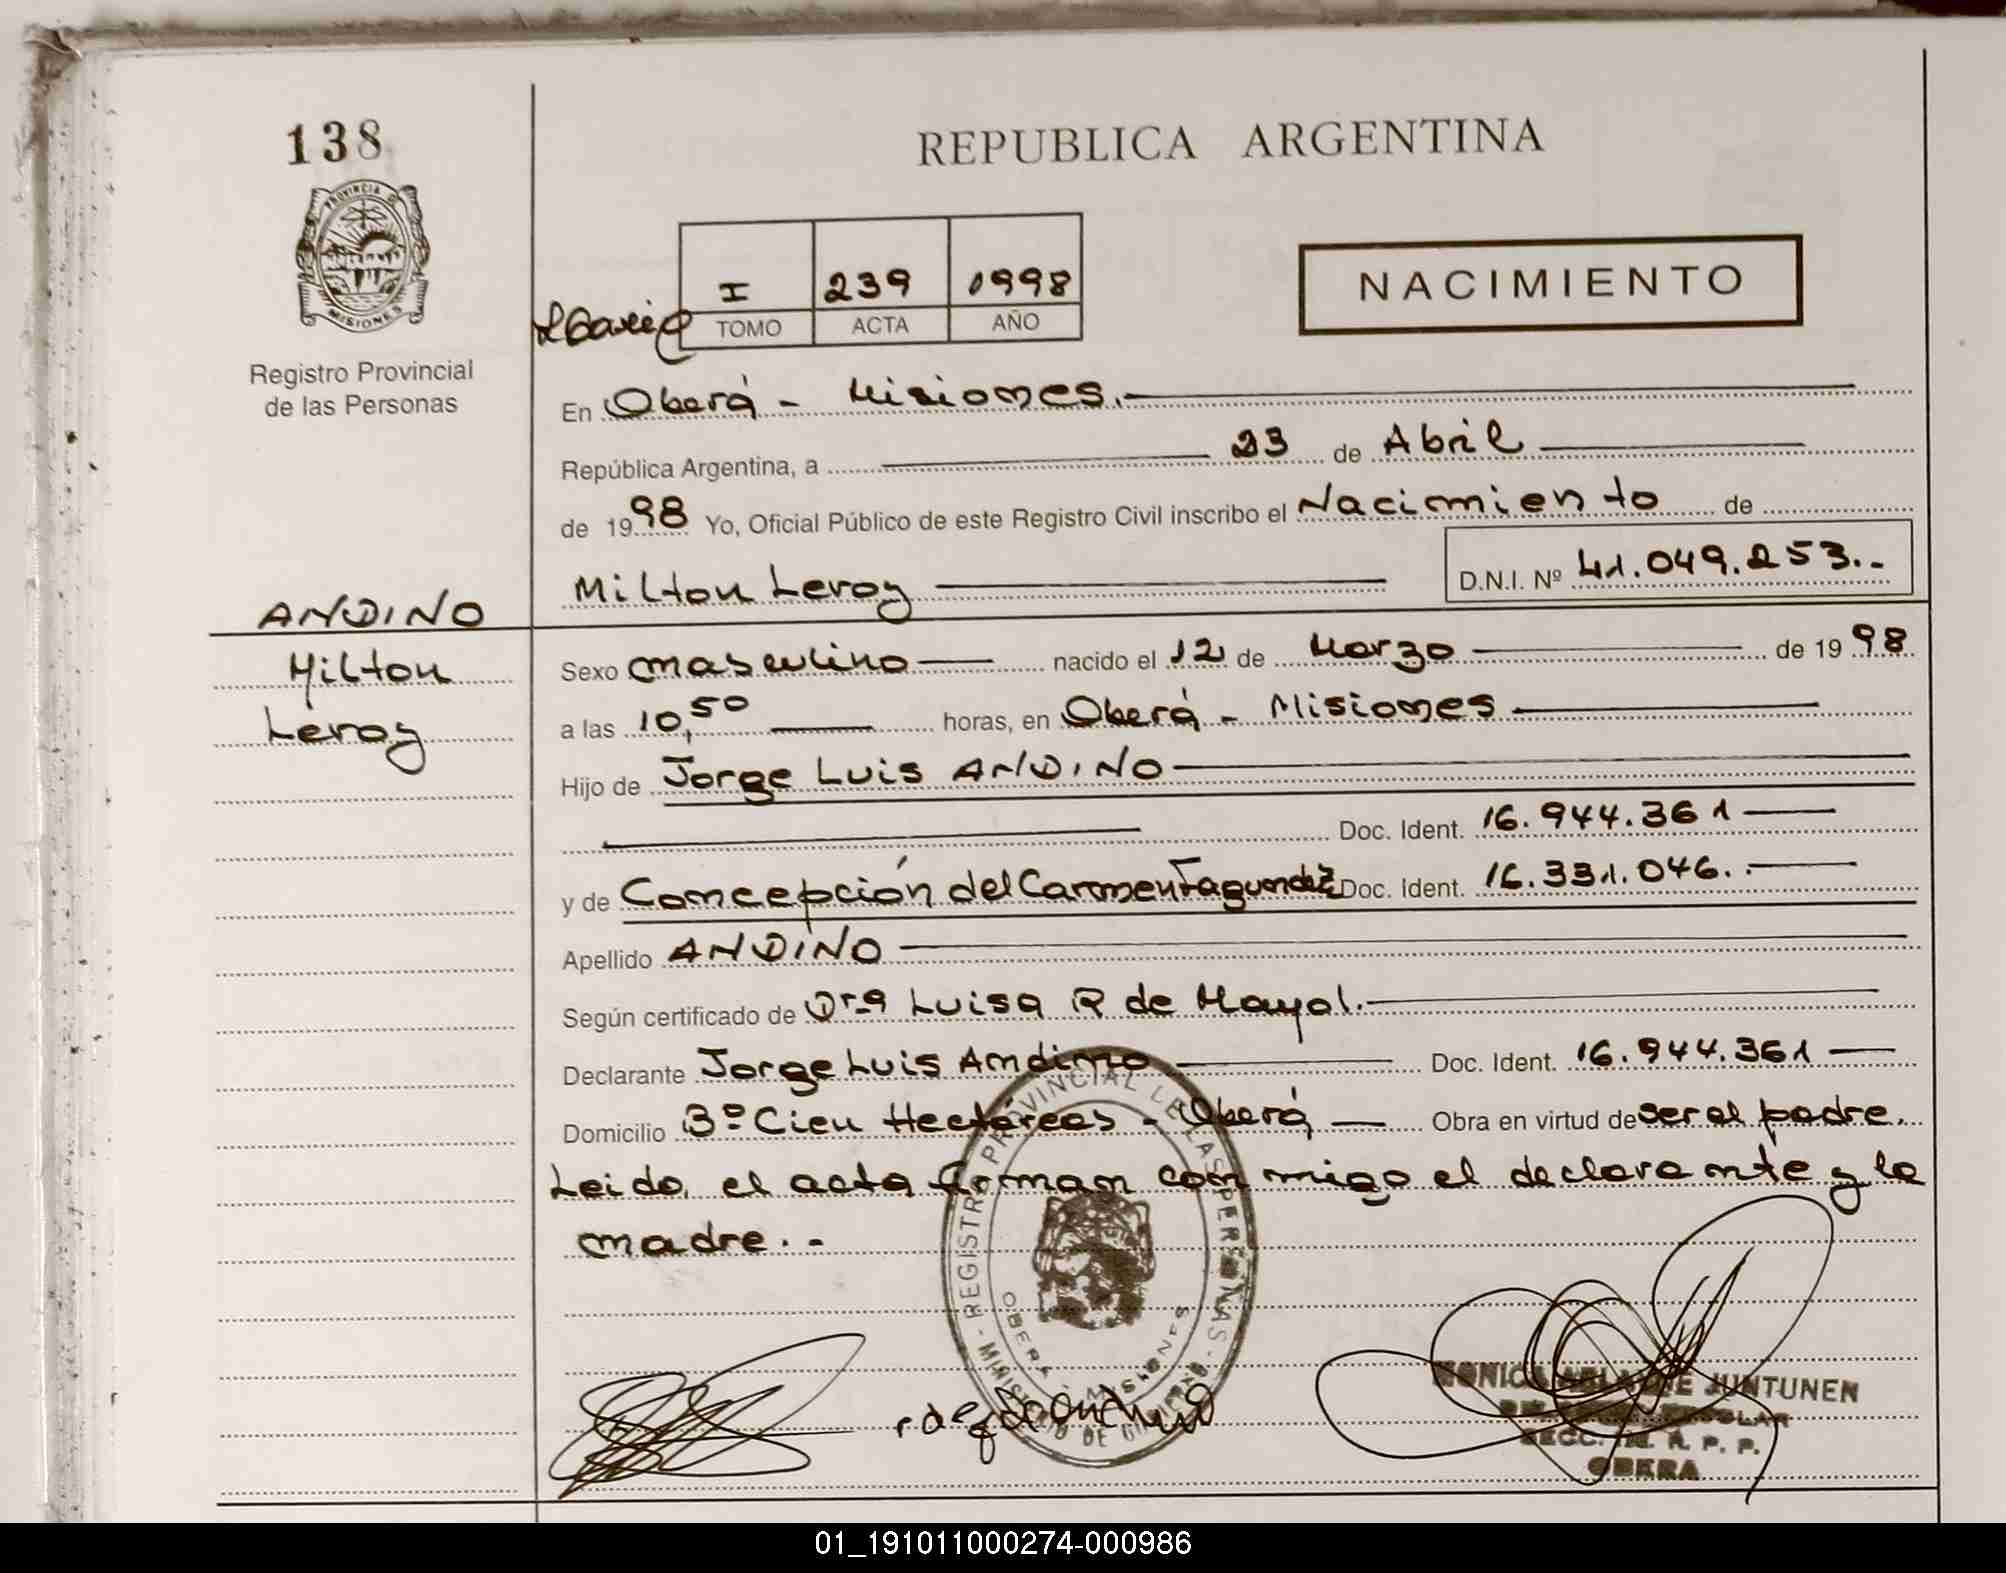 138
PROVINCIA D
MISIONES
Registro Provincial
de las Personas
REPUBLICA ARGENTINA
I 239 1998
TOMO ACTA AÑO
NACIMIENTO
En Oberá - Misiones.-
República Argentina, a 23 de Abril
de 1998 Yo, Oficial Público de este Registro Civil inscribo el Nacimiento de
Milton Leroy D.N.I. Nº 41.049.253.-
ANDINO
Milton
Leroy
Sexo masculino nacido el 12 de Marzo de 1998
a las 10,50 horas, en Oberá - Misiones
Hijo de Jorge Luis ANDINO
Doc. Ident. 16.944.361
y de Concepción del Carmen Fagundez Doc. Ident. 16.331.046.-
Apellido ANDINO
Según certificado de Drª Luisa R de Mayol.
Declarante Jorge Luis Andino Doc. Ident. 16.944.361
Domicilio 3º Cien Hectáreas - Oberá Obra en virtud de ser el padre.
Leido, el acta firman con migo el declarante y la
madre. -
REGISTRO PROVINCIAL DE LAS PERSONAS
MINISTERIO DE
OBERA MISIONES
JUNTUNEN
SECC. R. P. P.
OBERA
01_191011000274-000986